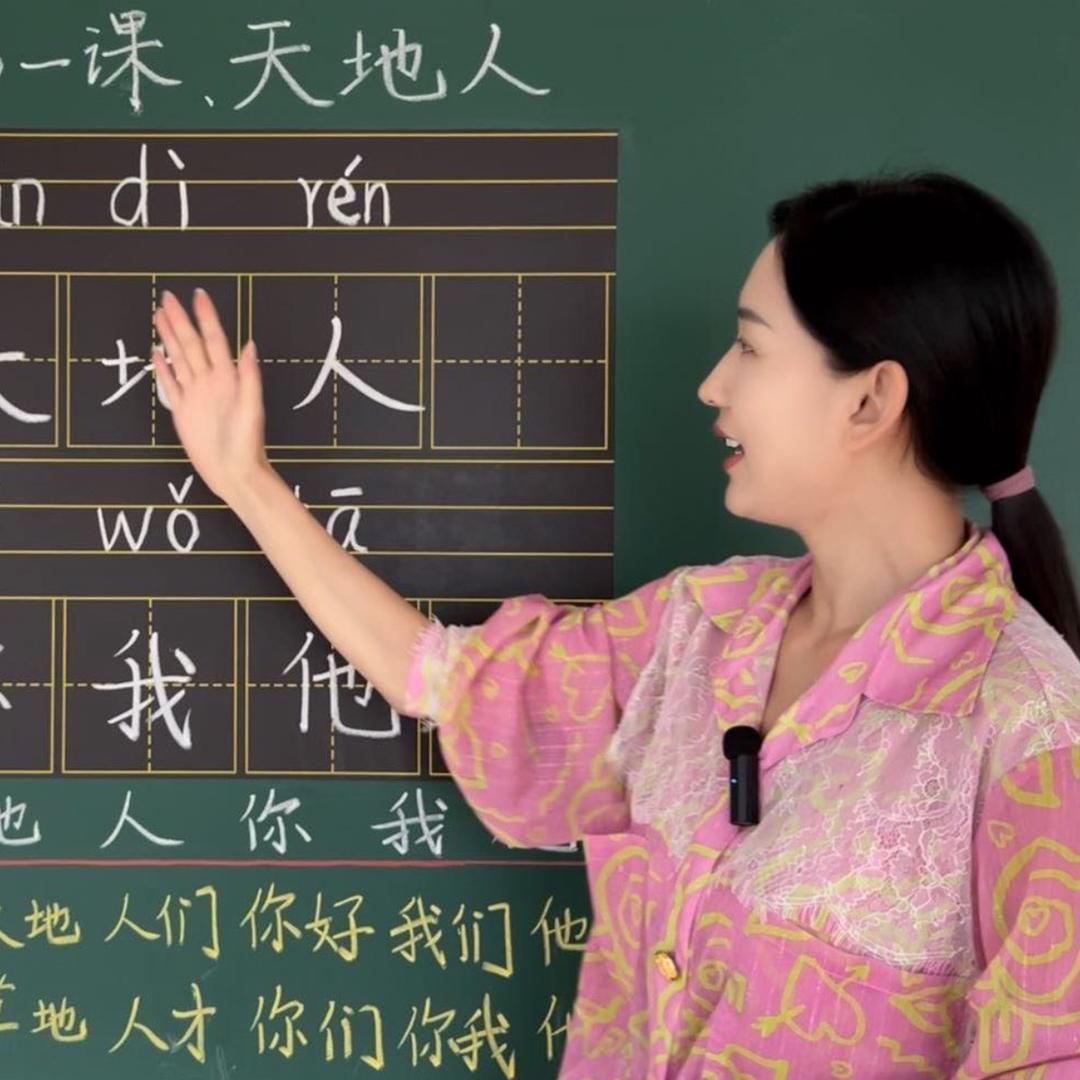 一课、天地人
dì rén
地 人
wǒ tā
我 他
地 人 你 我
地 人们 你好 我们 他
地 人才 你们 你我